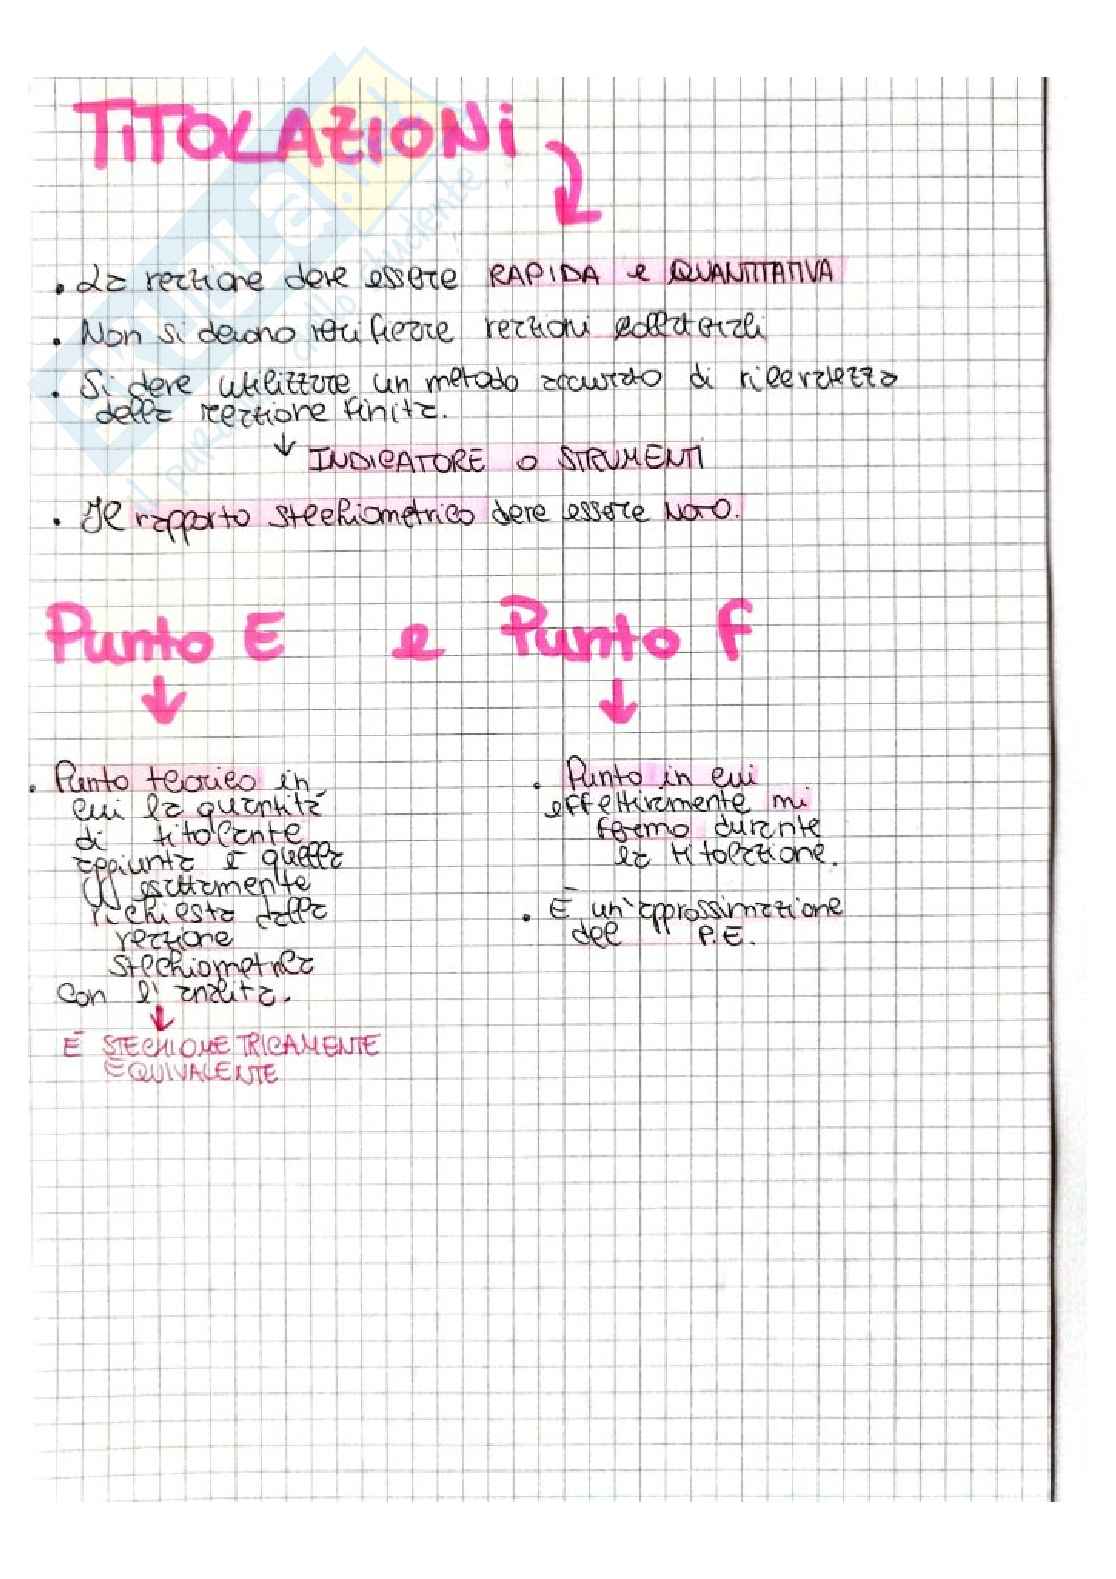 TITOLAZIONI
• La reazione deve essere RAPIDA e QUANTITATIVA
• Non si devono verificare reazioni collaterali
• Si deve utilizzare un metodo accurato di
della reazione finita.
↓ INDICATORE O STRUMENTI
• Il rapporto stechiometrico deve essere NOTO.
Punto E e Punto F
• Punto teorico in
cui la quantità
di titolante
aggiunta è quella
esattamente
richiesta dalla
reazione
stechiometrica
con l'analita.
È STECHIOMETRICAMENTE
EQUIVALENTE
• Punto in cui
effettivamente mi
fermo durante
la titolazione.
• È un'approssimazione
del P.E.